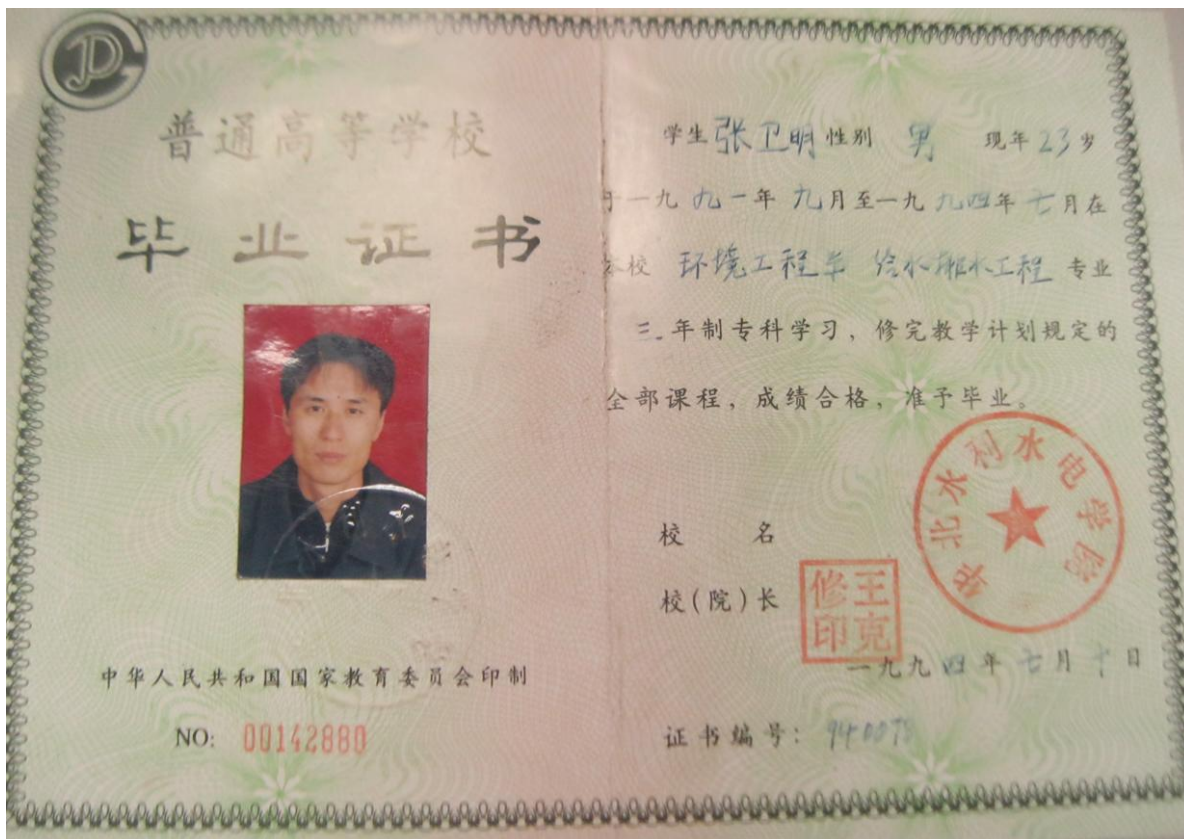 普通高等学校
毕业证书
中华人民共和国国家教育委员会印制
NO: 00142880
学生 张卫明 性别 男 现年 23 岁
于一九 九一 年 九 月至一九 九四 年 七 月在
本校 环境工程系 给水排水工程 专业
三 年制专科学习，修完教学计划规定的
全部课程，成绩合格，准予毕业。
华北水利水电学院
校 名
校(院)长
王克修印
一九九四年七月十日
证书编号：